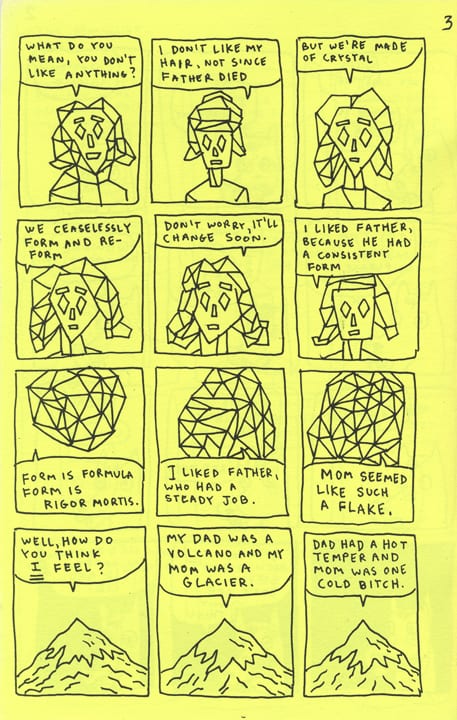 3
WHAT DO YOU
MEAN, YOU DON'T
LIKE ANYTHING?
I DON'T LIKE MY
HAIR, NOT SINCE
FATHER DIED
BUT WE'RE MADE
OF CRYSTAL
WE CEASELESSLY
FORM AND RE-
FORM
DON'T WORRY, IT'LL
CHANGE SOON.
I LIKED FATHER,
BECAUSE HE HAD
A CONSISTENT
FORM
FORM IS FORMULA
FORM IS
RIGOR MORTIS.
I LIKED FATHER,
WHO HAD A
STEADY JOB.
MOM SEEMED
LIKE SUCH
A FLAKE.
WELL, HOW DO
YOU THINK
I FEEL?
MY DAD WAS A
VOLCANO AND MY
MOM WAS A
GLACIER.
DAD HAD A HOT
TEMPER AND
MOM WAS ONE
COLD BITCH.